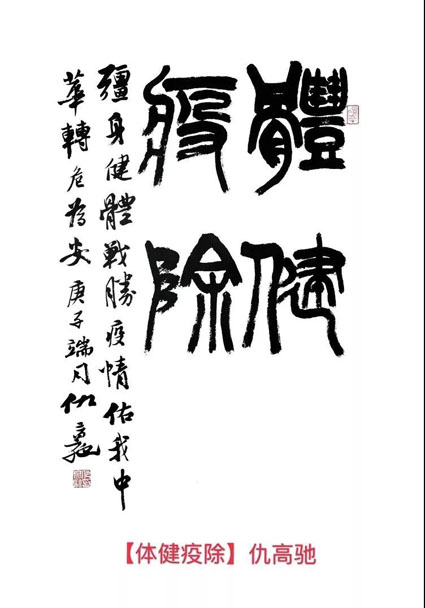 體健
疫除
彊身健體戰勝疫情佑我中
華轉危為安庚子端月仇高馳
【体健疫除】仇高驰